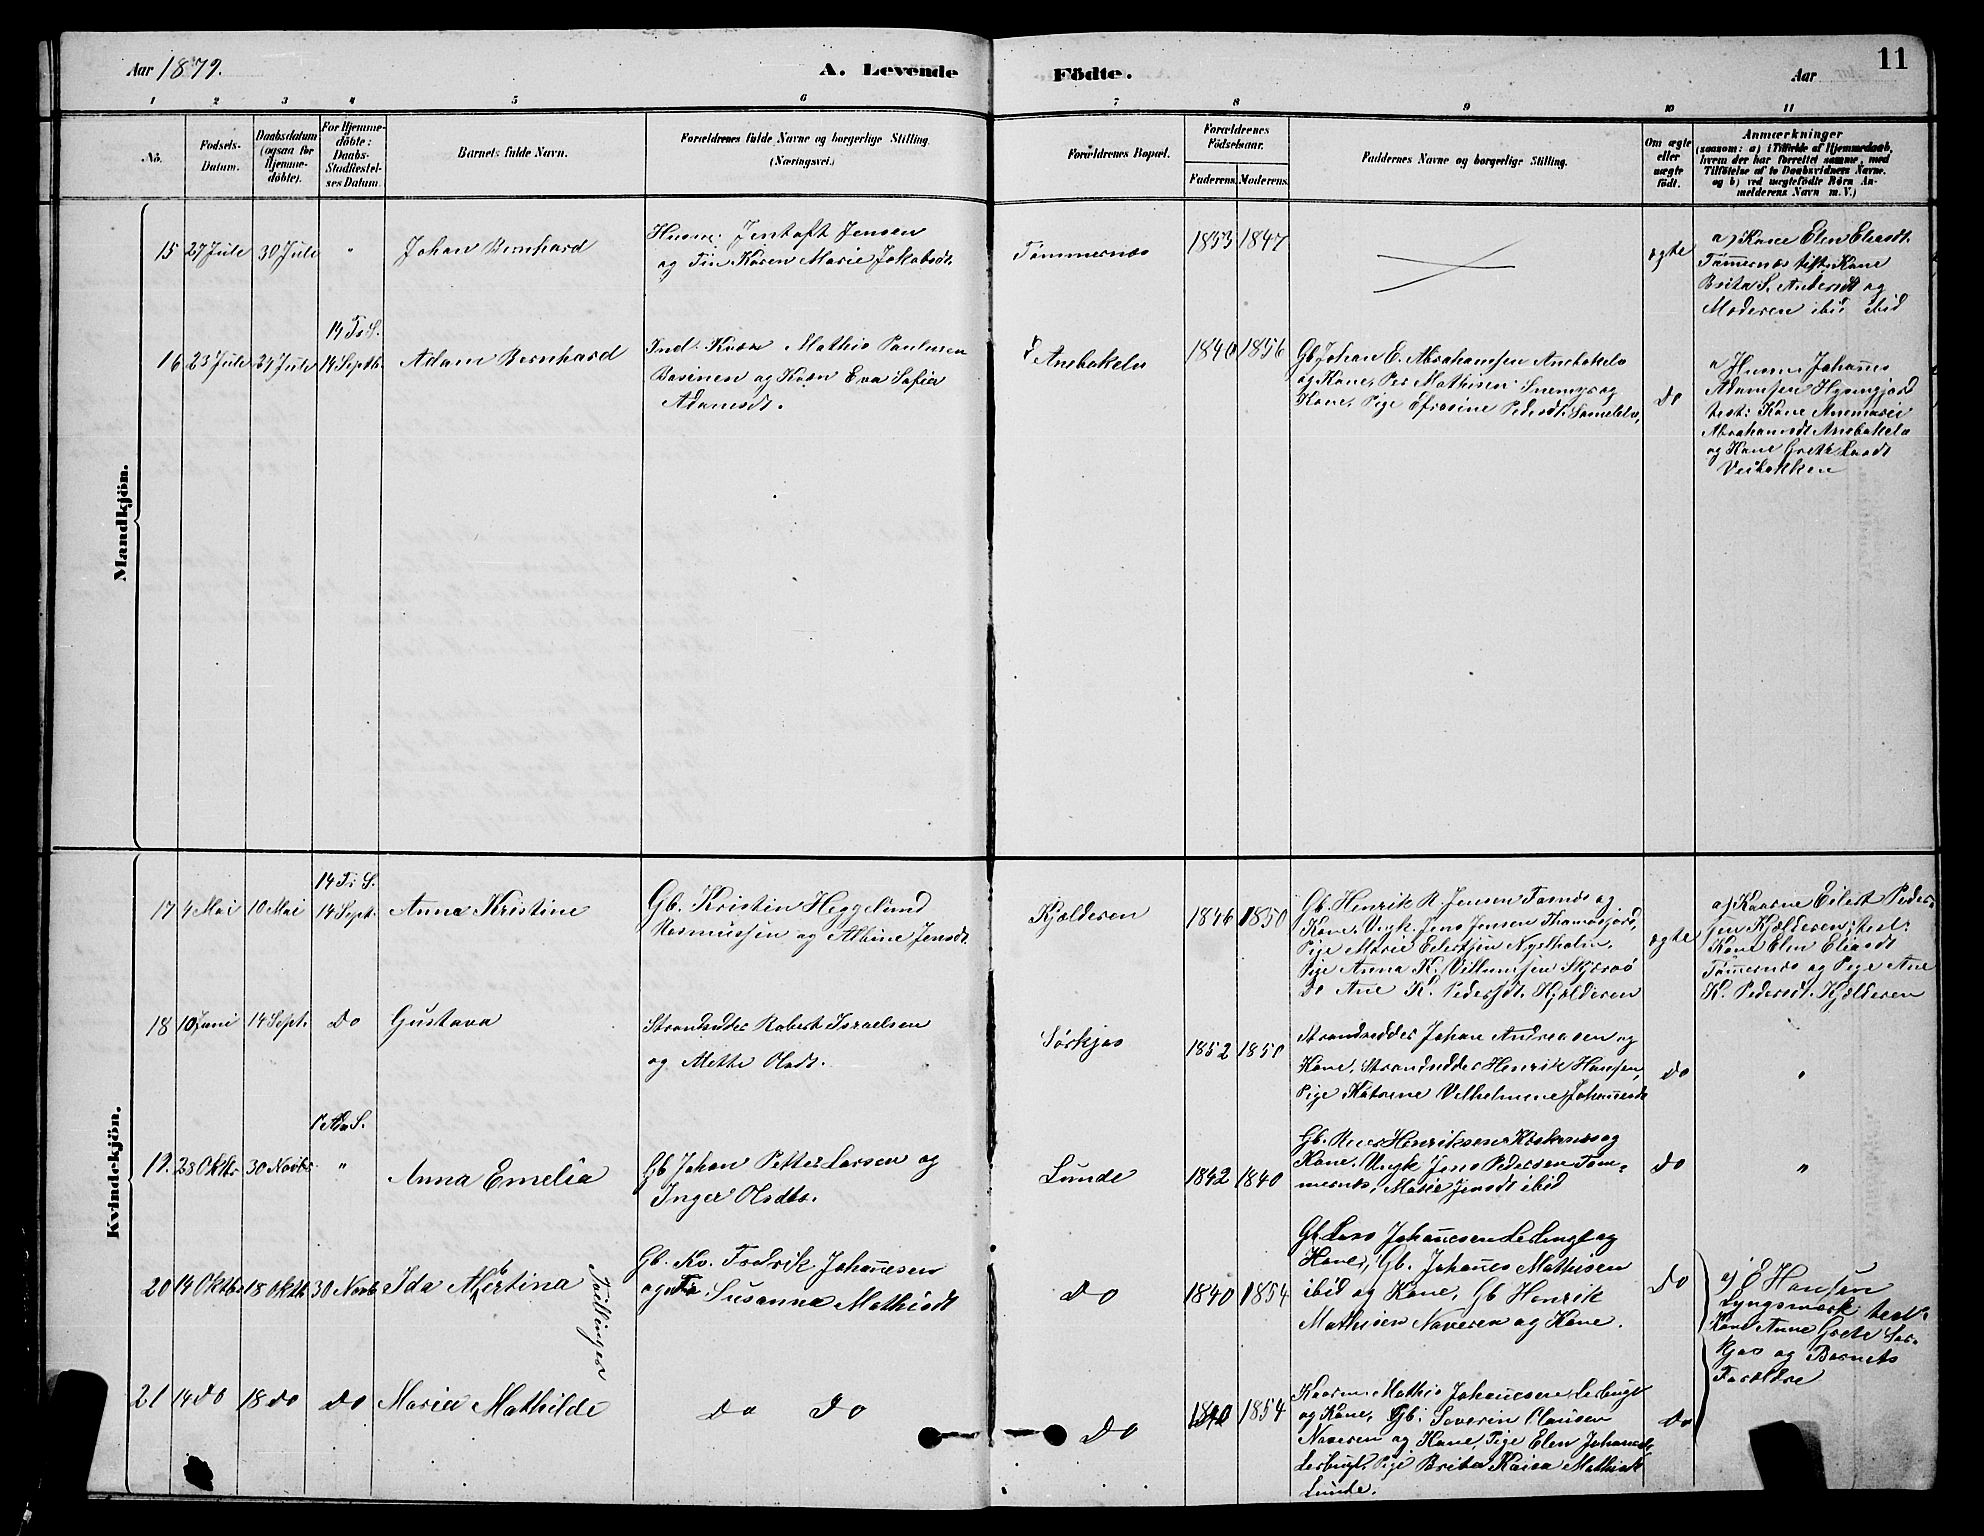 Aar 1879.
A. Levende
Födte.
Aar
11
1 2 3 4 5 6 7 8 9 10 11
No.
Fodsels-
Datum.
Daabsdatum
(ogsaa for
Hjemme-
döbte).
For Hjemme-
döbte:
Daabs-
Stadfæstel-
ses Datum.
Barnets fulde Navn.
Forældrenes fulde Navne og borgerlige Stilling
(Næringsvei.)
Forældrenes Bopæl.
Forældrenes
Födselsaar.
Faderens. Moderens.
Faddernes Navne og borgerlige Stilling.
Om ægte
eller
uægte
födt.
Anmærkninger
(saasom: a) i Tilfælde af Hjemmedaab,
hvem der har forrettet samme, med
Tilföielse af to Daabsvidners Navne.
og b) ved uægtefödte Börn An-
melderens Navn m. V.)
Mandkjön.
15 27 Jule 30 Jule "
Johan Bernhard
Husm: Jentoft Jensen
og Fin Karen Marie Jakobsdt.
Tømmernæs
1853 1847
ægte
a) Kone Elen Eliasdt.
Tømernæs test. Kone
Brita S. Andersdt og
Moderen ibid ibid
14 Ts S.
16 23 Jule 24 Jule 14 Septb.
Adam Bernhard
Ind. Kvæn Mathis Paulusen
Basinen og Kvæn Eva Sofia
Adamsdt.
Ansbakela
1840 1856
Gb. Johan E. Abrahamsen Ansbakela
og Kone, Per Mathisen Snemyr og
Kone, Pige Efrosine Pedersdt.
Do
a) Husm. Johannes
Adamsen
test: Kone Annemarie
Abrahamsdt Ansbakela
og Kone Grete Larsdt
Veibakken
Kvindekjön.
14 Ts S.
17 4 Mai 10 Mai 14 Sept.
Anna Kristine
Gb. Kristin Heggelund
Rasmussen og Albine Jensdt.
Kjelderen
1846 1850
Gb. Henrik R. Jensen Tømnes og
Kone, Ungk. Jens Jensen Thomasjord,
Pige Marie Eilertsen Nyelholm,
Pige Anna K. Villumsen Skjærvö
Do Ane K. Pedersdt. Kjelderen
ægte
a) Kaarne Eilert Peder-
sen Kjelderen, test:
Kone Elen Eliasdt
Tømernæs og Pige Ane
K. Pedersdt. Kjelderen
18 10 Juni 14 Sept. Do
Gustava
Strandsidder Robert Israelsen
og Mette Olsdt.
Sørkjos
1852 1850
Strandsidder Johan Andreasen og
Kone, Strandsidder Henrik Hansen,
Pige Katrine Vilhelmine Johannesdt
Do
"
1 Adv S.
19. 23 Oktb. 30 Novb. "
Anna Emelia
Gb Johan Petter Larsen og
Inger Olsdtr.
Lunde
1842 1840
Gb. Henriksen og
Kone, Ungk Jens Pedersen Tøm-
mernes, Marie Jensdt ibid
Do
"
20 14 Oktbr 18 Oktb. 30 Novb.
Ida Albertina
Tvillinger
Gb. Kv. Fredrik Johannesen
og Fr. Susanna Mathisdt
Do
1840 1854
Gb Lars Johannesen Lerbugt og
Kone, Gb. Johannes Mathisen
ibid og Kone, Gb Henrik
Mathisen Naveren og Kone.
Do
a) E Hansen
Lyngsmark test:
Kone Anne Grete Sør-
kjos og Barnets
Forældre
21 14 Do 18 Do Do
Maria Mathilde
Do Do
Do
1840 1854
Kaarn. Mathis Johannesen Lerbugt
og Kone, Gb. Severin Clausen
Naveren og Kone, Pige Elen Johannsdt
Lerbugt, Pige Brita Kaisa Mathisdt
Lunde.
Do